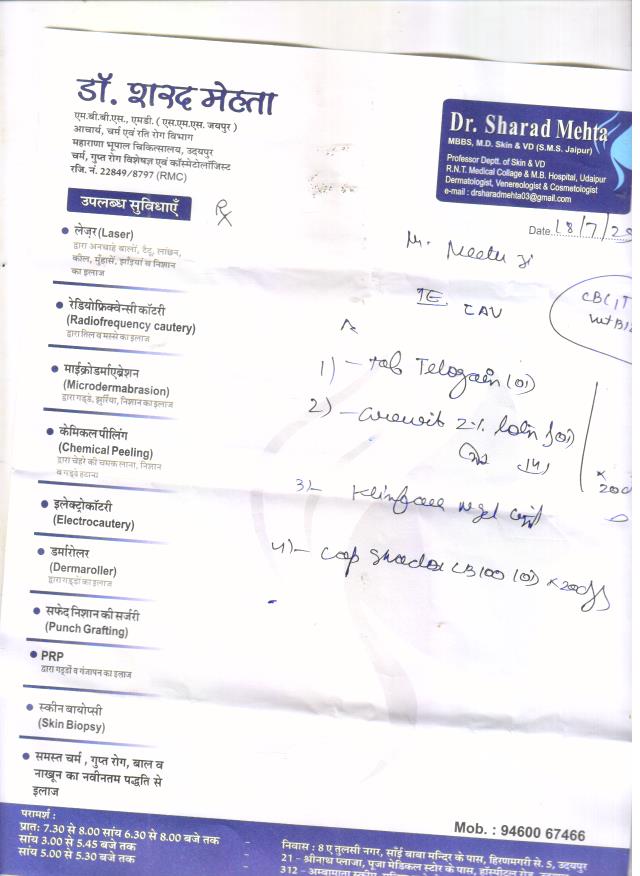 डॉ. शरद मेहता
एम.बी.बी.एस., एमडी. ( एस.एम.एस. जयपुर )
आचार्य, चर्म एवं रति रोग विभाग
महाराणा भूपाल चिकित्सालय, उदयपुर
चर्म, गुप्त रोग विशेषज्ञ एवं कॉस्मेटोलॉजिस्ट
रजि. नं. 22849/8797 (RMC)
Dr. Sharad Mehta
MBBS, M.D. Skin & VD (S.M.S. Jaipur)
Professor Deptt. of Skin & VD
R.N.T. Medical Collage & M.B. Hospital, Udaipur
Dermatologist, Venereologist & Cosmetologist
e-mail : drsharadmehta03@gmail.com
Date 18/7/20
उपलब्ध सुविधाएँ
Rx
लेज़र (Laser)
द्वारा अनचाहे बालों, टैटू, लांछन,
कील, मुँहासें, झाँइयां व निशान
का इलाज
रेडियोफ्रिक्वेन्सी कॉटरी
(Radiofrequency cautery)
द्वारा तिल व मस्से का इलाज
माईक्रोडर्माएब्रेशन
(Microdermabrasion)
द्वारा गड्डे, झुर्रिया, निशान का इलाज
केमिकल पीलिंग
(Chemical Peeling)
द्वारा चेहरे की चमक लाना, निशान
व गड्डे हटाना
इलेक्ट्रोकॉटरी
(Electrocautery)
डर्मारोलर
(Dermaroller)
द्वारा गड्डों का इलाज
सफेद निशान की सर्जरी
(Punch Grafting)
PRP
द्वारा गड्डों व गंजापन का इलाज
स्कीन बायोप्सी
(Skin Biopsy)
समस्त चर्म , गुप्त रोग, बाल व
नाखून का नवीनतम पद्धति से
इलाज
Neetu Ji
TE
CBC
1) - tab Telogain (01)
2) - 2% lotn
3) -
4) - cap 100 (01) x 20d
Mob. : 94600 67466
परामर्श :
प्रातः 7.30 से 8.00 सांय 6.30 से 8.00 बजे तक
सांय 3.00 से 5.45 बजे तक
सांय 5.00 से 5.30 बजे तक
निवास : 8 ए तुलसी नगर, साँई बाबा मन्दिर के पास, हिरणमगरी से. 5, उदयपुर
21 - श्रीनाथ प्लाजा, पूजा मेडिकल स्टोर के पास, हॉस्पीटल रोड
312 - अम्बामाता स्कीम